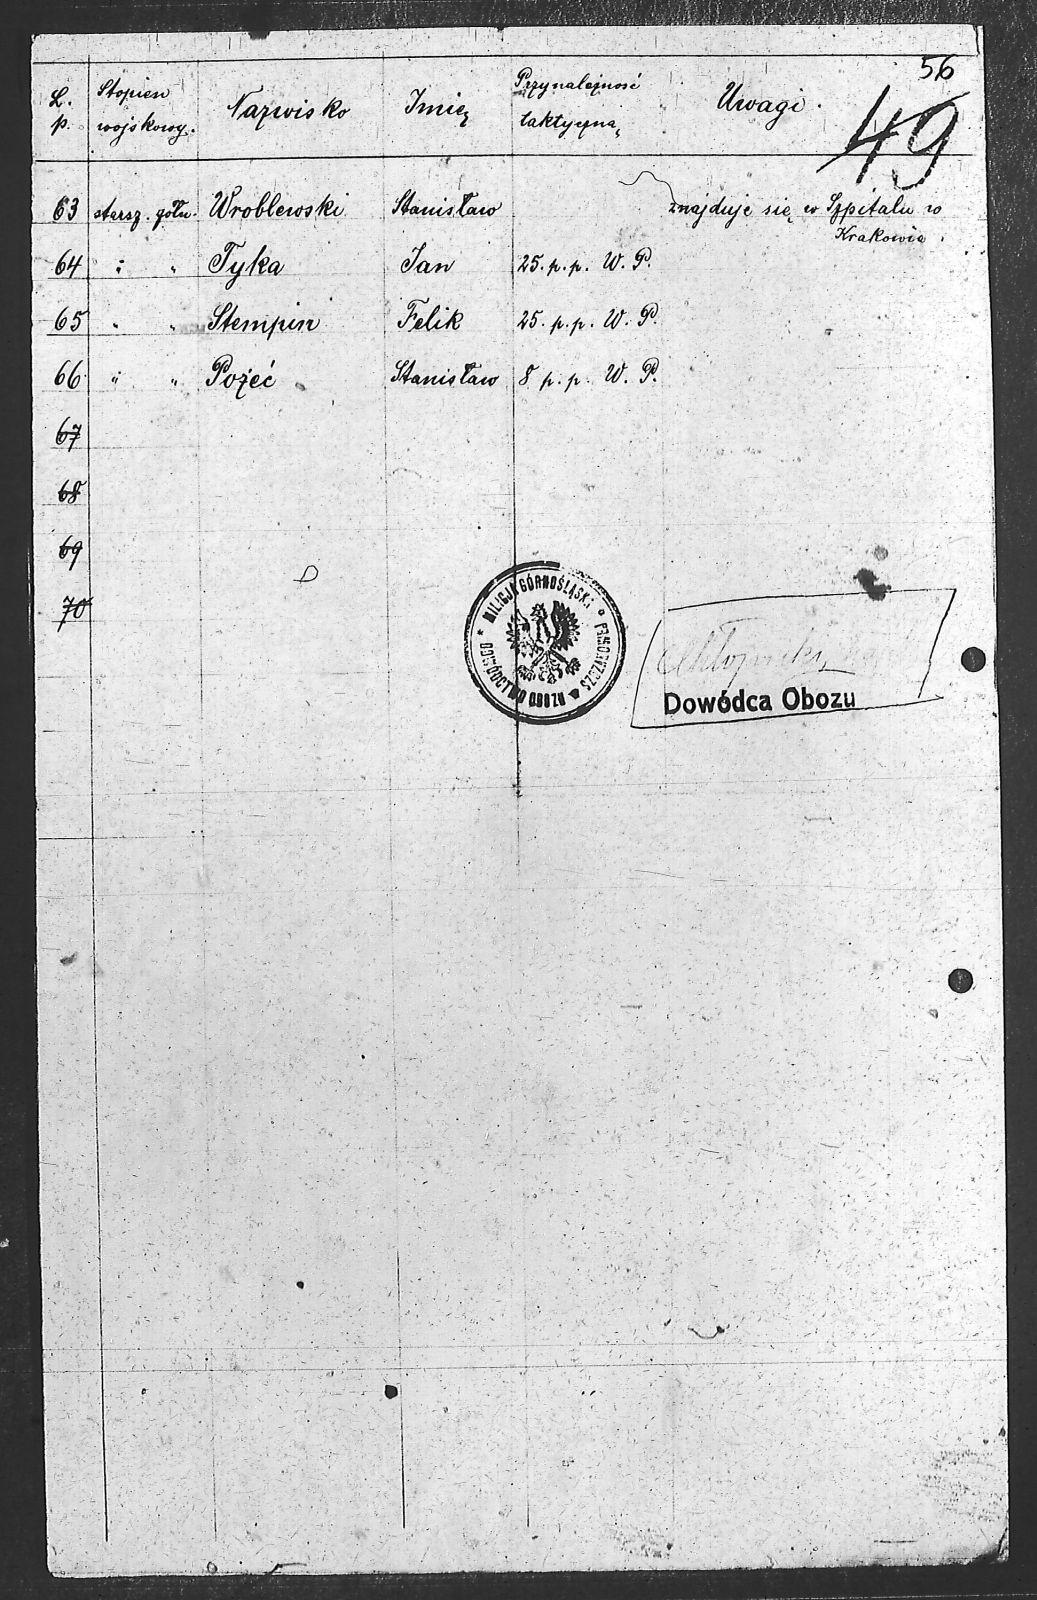 56
49
L. p. Stopien wojskowy. Nazwisko Imię Przynależność taktyczną Uwagi.
63 starsz. żołn. Wroblewski Stanisław znajduje się w Szpitalu w
Krakowie.
64 " " Tyka Jan 25. p.p. W. P.
65 " " Stempin Felik 25. p.p. W. P.
66 " " Pożeć Stanisław 8 p.p. W. P.
67
68
69
70
MILICJA GÓRNOŚLĄSKA * DOWÓDCTWO OBOZU *
Dowódca Obozu